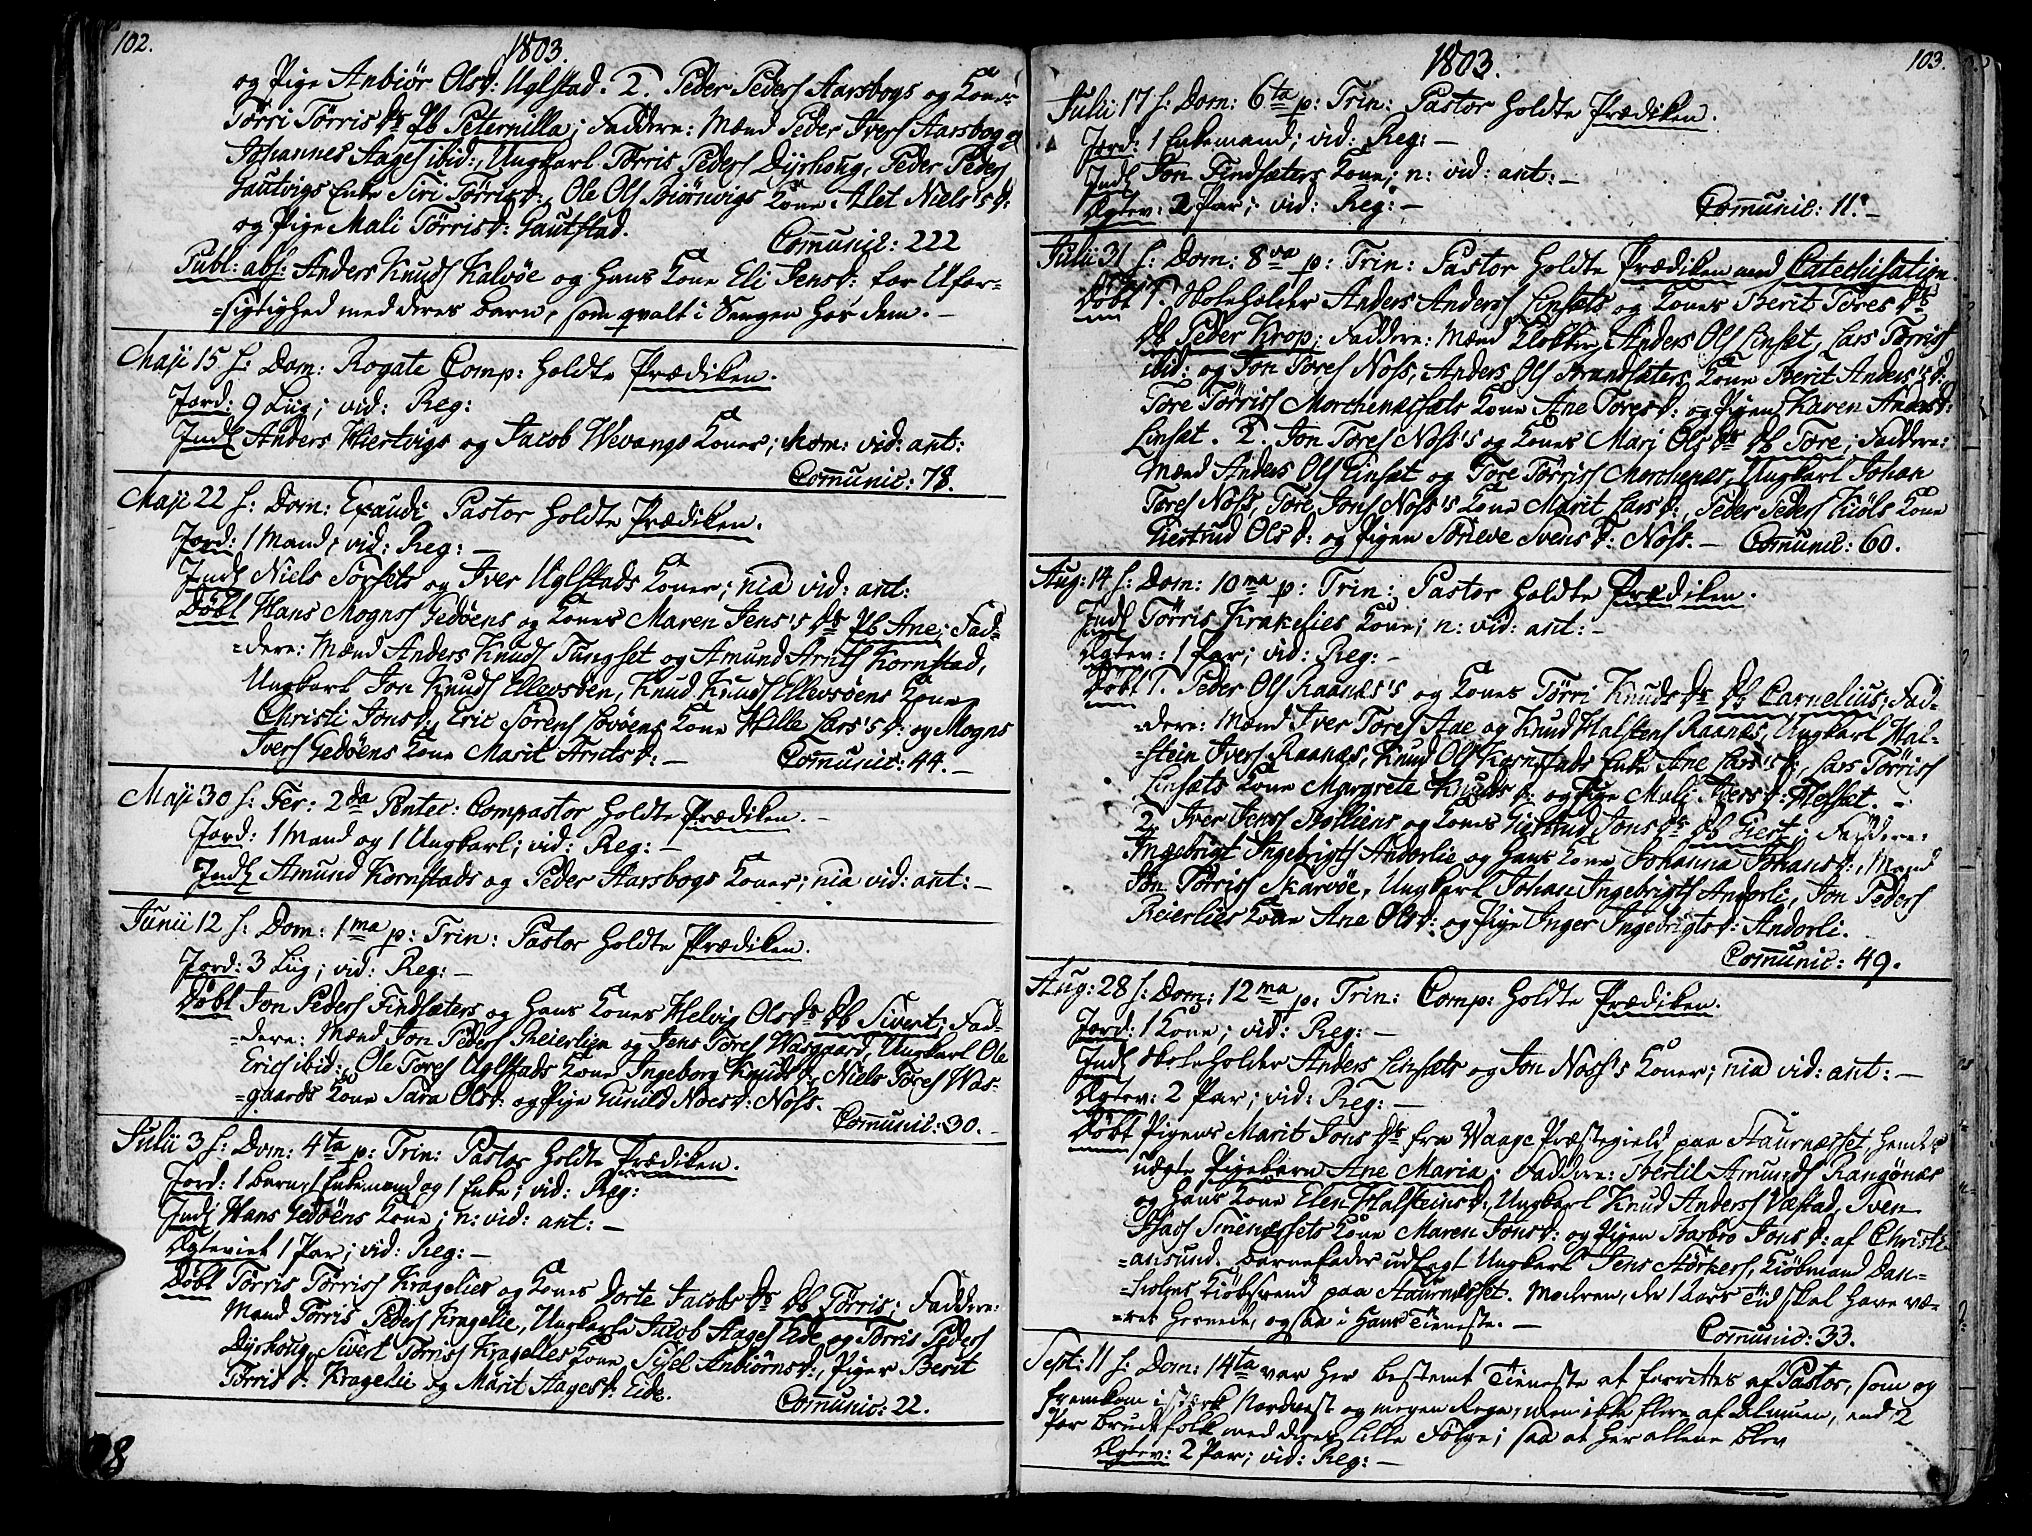 102.
1803.
og Pige Anbiør Olsd: Uglstad. 2. Peder Peders Aarsbogs og Kones
Tørri Tørrisdr PB Peternilla; Faddere: Mænd Peder Ivers Aarsbog og
Johannes Aages ibid:, Ungkarl Tørris Peders Dyrhoug, Peder Peders
Gautvigs Enke Siri Tørrisd:, Ole Ols Biørnvigs Kone Alet Niels's d:
og Pige Mali Tørrisd: Gautstad. Comunic: 222
Publ: abs: Anders Knuds Kalvøe og hans Kone Eli Jensd: for Ufor-
=sigtighed med deres Barn, som qvalt i Sengen hos dem. -
Maji 15 h: Dom: Rogate Comp: holdte Prædiken.
Jord: 9 Liig; vid: Reg:
Indl Anders Hiertvigs og Jacob Wevangs Koner; nom: vid: ant:
Comunic: 78.
Maji 22 h: Dom: Exaudi Pastor holdte Prædiken.
Jord: 1 Mand; vid: Reg: -
Indl Niels Sørsets og Iver Uglstads Koner; nia vid: ant:
Døbt Hans Mogns Gedøens og Kones Maren Jens's dr PB Ane; Fad-
=dere: Mænd Anders Knuds Tungset og Amund Arnts Kornstad,
Ungkarl Jon Knuds Ellevsøen, Knud Knuds Ellevsøens Kone
Christi Jonsd:, Eric Sørens Lovøens Kone Hille Lars's d: og Mogns
Ivers Gedøens Kone Marit Arntsd: - Comunic: 44. -
Maji 30 h: Fer: 2da Pentec: Compastor holdte Prædiken. -
Jord: 1 Mand og 1 Ungkarl; vid: Reg: -
Indl Amund Kornstads og Peder Aarsbogs Koner; nia vid: ant: -
Junii 12 h: Dom: 1ma p: Trin: Pastor holdte Prædiken.
Jord: 3 Liig; vid: Reg: -
Døbt Jon Peders Findsæters og hans Kones Helvig Olsdr DB Sivert; Fad-
=dere: Mænd Jon Peders Reierlien og Jens Tores Wasgaard, Ungkarl Ole
Erics ibid:, Ole Tores Uglstads Kone Ingeborg Knudsd:, Niels Tores Was-
=gaards Kone Sara Olsd: og Pige Gunild Noesd: Noss.
Comunic: 30. -
Julii 3 h: Dom: 4ta p: Trin: Pastor holdte Prædiken.
Jord: 1 Barn, 1 Enkemand og 1 Enke; vid: Reg:
Indl Hans Gedøens Kone; n: vid: ant: -
Ægteviet 1 Par; vid: Reg: -
Døbt Tørris Tørriss Kragelies og Kones Dorte Jacobsdr DB Tørris; Faddere:
Mænd Tørris Peders Kragelie, Ungkarle Jacob Aages Eide og Tørris Peders
Dyrhoug, Sivert Tørriss Kragelies Kone Sisel Anbiørnsd:, Piger Berit
Tørrisd: Kragelie og Marit Aagesd: Eide.
Comunic: 22.
98
1803.
103.
Julii 17 h: Dom: 6ta p: Trin: Pastor holdte Prædiken.
Jord: 1 Enkemand; vid: Reg: -
Indl Jon Findsæters Kone; n: vid: ant: -
Ægtev: 2 Par; vid: Reg: - Comunic: 11. -
Julii 31 h: Dom: 8va p: Trin: Pastor holdte Prædiken med Catechisation.
Døbt 1. Skoleholder Anders Anders Linsets og Kones Berit Toresdr
DB Peder Krop; Faddere: Mænd Klokker Anders Ols Linset, Lars Tørriss
ibid: og Jon Tores Noss, Anders Ols Strandsæters Kone Berit Anders's d:
Tore Tørriss Morchenæssæts Kone Ane Toresd: og Pigen Karen Andersd:
Linsæt. 2. Jon Tores Noss's og Kones Mari Olsdr DB Tore; Faddere:
Mænd Anders Ols Linsæt og Tore Tørriss Morchenæs, Ungkarl Johan
Tores Noss, Tore Jons Noss's Kone Marit Larsd:, Peder Peders Kiøls Kone
Giertrud Olsd: og Pigen Sørieve Svensd: Noss. - Comunic: 60.
Aug: 14 h: Dom: 10ma p: Trin: Pastor holdte Prædiken.
Indl Tørris Krakelies Kone; n: vid: ant: -
Ægtev: 1 Par; vid: Reg: -
Døbt 1. Peder Ols Raanæs's og Kones Tørri Knudsdr DB Carnelius; Fad-
=dere: Mænd Iver Tores Aae og Knud Halstens Raanæs, Ungkarl Hal-
=stein Ivers Raanæs, Knud Ols Kornstads Enke Ane Lars's d:, Lars Tørriss
Linsæts Kone Margrete Knudsd: og Pige Mali Iversd: Flesset. -
2. Iver Jens Stolliens og Kones Giertrud Jonsdr DB Giert; Faddere:
Ingebrigt Ingebrigts Andorlie og hans Kone Johanna Johansd:, Mand
Jon Tørriss Skarvøe, Ungkarl Johan Ingebrigts Andorli, Jon Peders
Reierlies Kone Ane Olsd: og Pige Inger Ingebrigtsd: Andorli.
Comunic: 49.
Aug: 28 h: Dom: 12ma p: Trin: Comp: holdte Prædiken.
Jord: 1 Kone; vid: Reg: -
Indl Skoleholder Anders Linsæts og Jon Noss's Koner; nia vid: ant: -
Ægtev: 2 Par; vid: Reg: -
Døbt Pigens Marit Jonsdr fra Waage Præstegield paa Staurnæsset hendes
uægte Pigebarn Ane Maria; Faddere: Bertil Amunds Rangønæs
og hans Kone Elen Halsteinsd:, Ungkarl Knud Anderss Væstad, Sven
Isacs Smenæssets Kone Maren Jonsd: og Pigen Barbro Jonsd: af Christi-
=ansund. Barnefader udlagt Ungkarl Jens Størkers, Kiøbmand Dan-
=holms Kiøbsvend paa Staurnæsset. Moderen, de 1 Aars Tid skal have væ-
=ret hernede, ogsaa i hans Tieneste. -
Comunic: 33.
Sept: 11 h: Dom: 14ta var her bestemt Tieneste at forrettes af Pastor, som og
fremkom i stærk Nordvest og megen Regn, men ikke flere af Almuen, end 2
Par Brudefolk med deres lille Følge; saa at her allene blev
Ægtev: 2 Par; vid: Reg: -